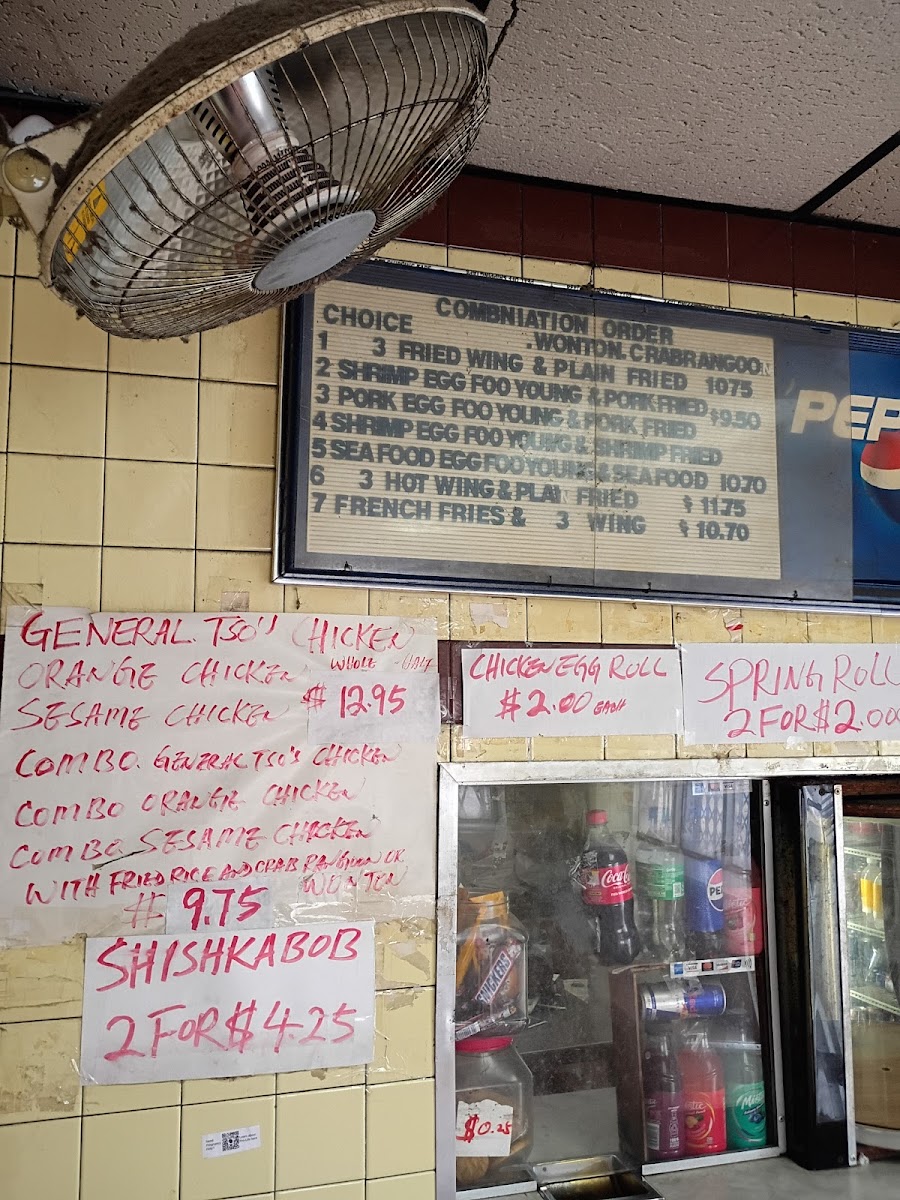 COMBNIATION ORDER
CHOICE .WONTON. CRABRANGOON
1 3 FRIED WING & PLAIN FRIED 1075
2 SHRIMP EGG FOO YOUNG & PORK FRIED $9.50
3 PORK EGG FOO YOUNG & PORK FRIED
4 SHRIMP EGG FOO YOUNG & SHRIMP FRIED
5 SEA FOOD EGG FOO YOUNG & SEA FOOD 10.70
6 3 HOT WING & PLAI FRIED $ 11.75
7 FRENCH FRIES & 3 WING $ 10.70
PEP
GENERAL. TSO'S CHICKEN
ORANGE CHICKEN WHOLE - HALF
SESAME CHICKEN $ 12.95
COMBO. GENERAL TSO'S CHICKEN
COMBO ORANGE CHICKEN
COMBO SESAME CHICKEN
WITH FRIED RICE AND CRAB RANGOON OR
WONTON
$ 9.75
CHICKEN EGG ROLL
$2.00 EACH
SPRING ROLL
2 FOR $2.00
SHISHKABOB
2 FOR $4.25
Coca-Cola
SNICKERS
$0.25